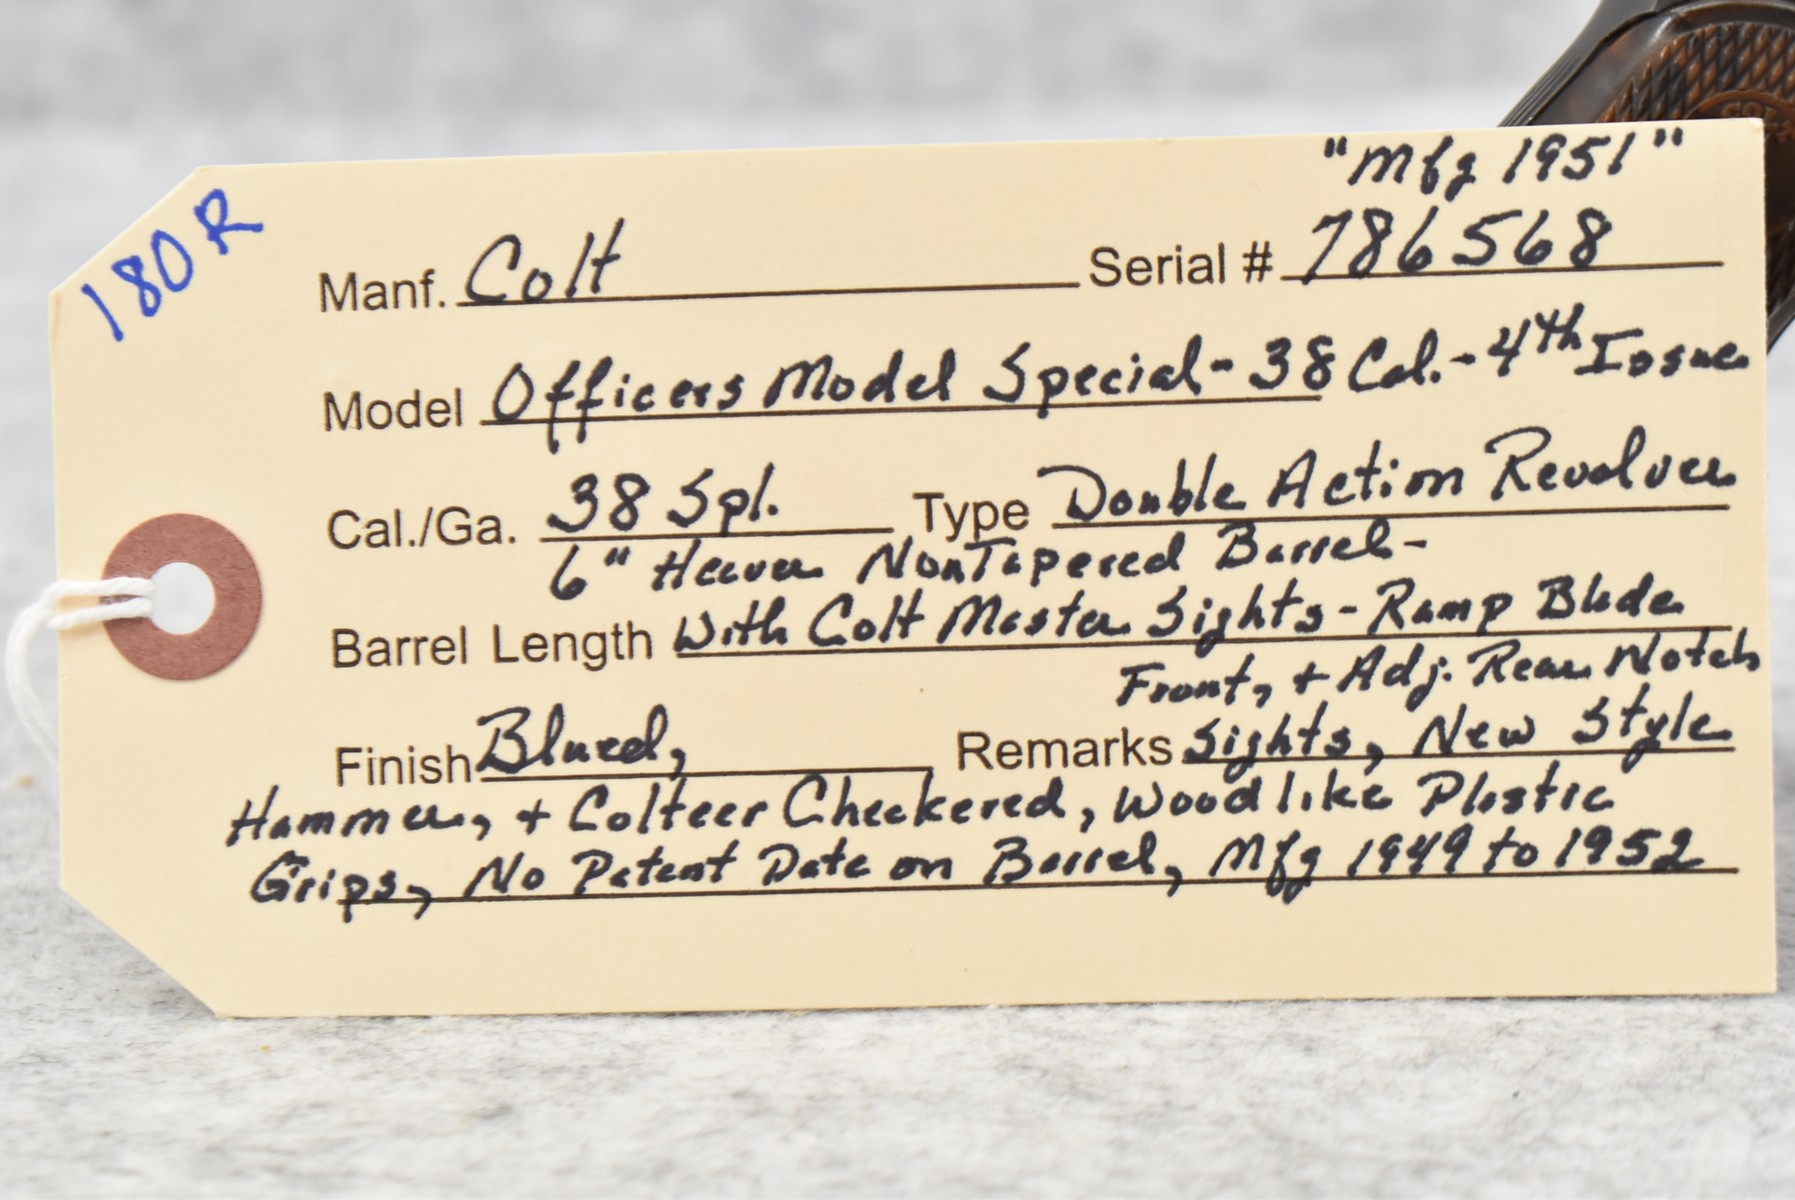 180R
"Mfg 1951"
Manf. Colt Serial # 786568
Model Officers Model Special - 38 Cal. - 4th Issue
Cal./Ga. 38 Spl. Type Double Action Revolver
6" Heaver NonTapered Barrel -
Barrel Length With Colt Master Sights - Ramp Blade
Front, + Adj. Rear Notch
Finish Blued, Remarks Sights, New Style
Hammer, + Colteer Checkered, Woodlike Plastic
Grips, No Patent Date on Barrel, Mfg 1949 to 1952